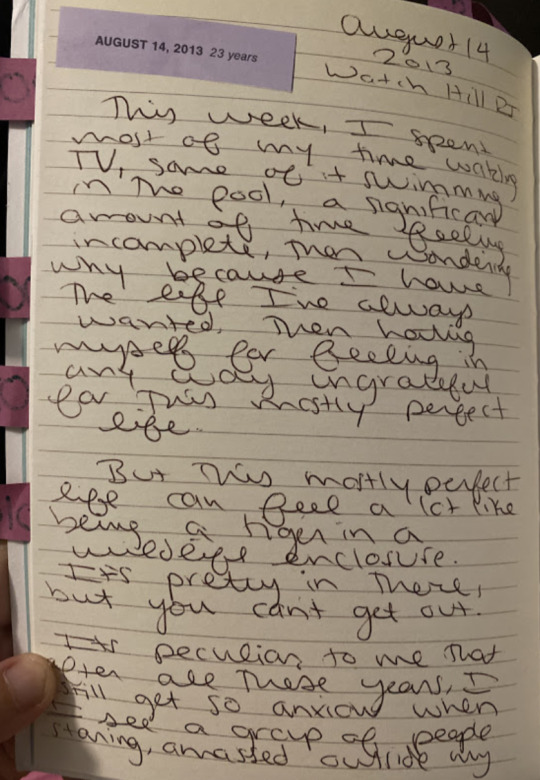 AUGUST 14, 2013 23 years
August 14
2013
Watch Hill RI
This week, I spent
most of my time watching
TV, some of it swimming
in the pool, a significant
amount of time feeling
incomplete, then wondering
why because I have
the life I've always
wanted. Then hating
myself for feeling in
any way ungrateful
for this mostly perfect
life.
But this mostly perfect
life can feel a lot like
being a tiger in a
wildlife enclosure.
It's pretty in there,
but you can't get out.
It's peculiar to me that
after all these years, I
still get so anxious when
I see a group of people
staring, amassed outside my